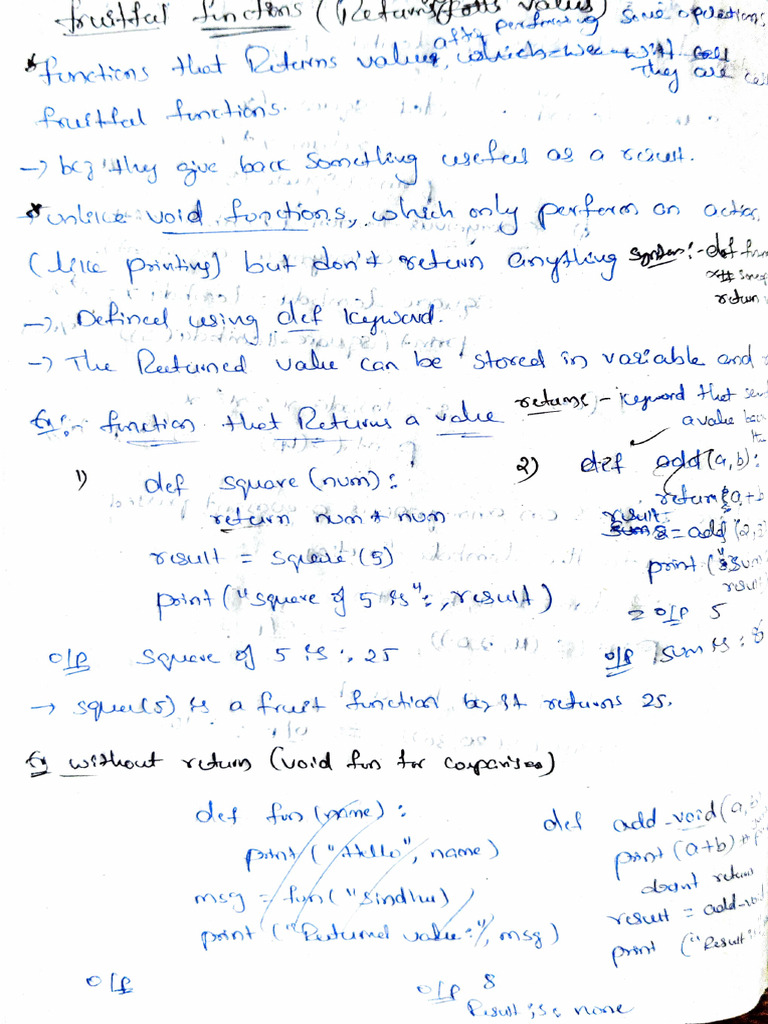 fruitful functions (Returns value)
after performing some operations,
* functions that Returns value, which
They are
fruitful functions.
→ bcz they give back something useful as a result.
* unlike void functions, which only perform an action
(like printing) but don't return anything
syntax:- def
return
→ Defined using def keyword.
→ The Returned value can be stored in variable and
Ex:- function that Returns a value
return - keyword that
a value back
1) def square(num):
return num * num
result = square(5)
print("square of 5 is":, result)
o/p square of 5 is:, 25
2) def add(a,b):
return a+b
result = add(2,3
print("Sum
result
= o/p 5
o/p sum is: 8
→ square(5) is a fruit function bcz it returns 25.
Ex without return (void fun for comparison)
def fun(name):
print("Hello", name)
msg = fun("sindhu")
print("Returned value:", msg)
o/p
def add_void(a,
print(a+b) #
doesnt return
result = add_vo
print("Result
o/p 8
Result is: none